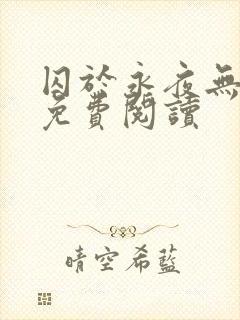 囚於永夜無
免費閱讀
晴空希藍